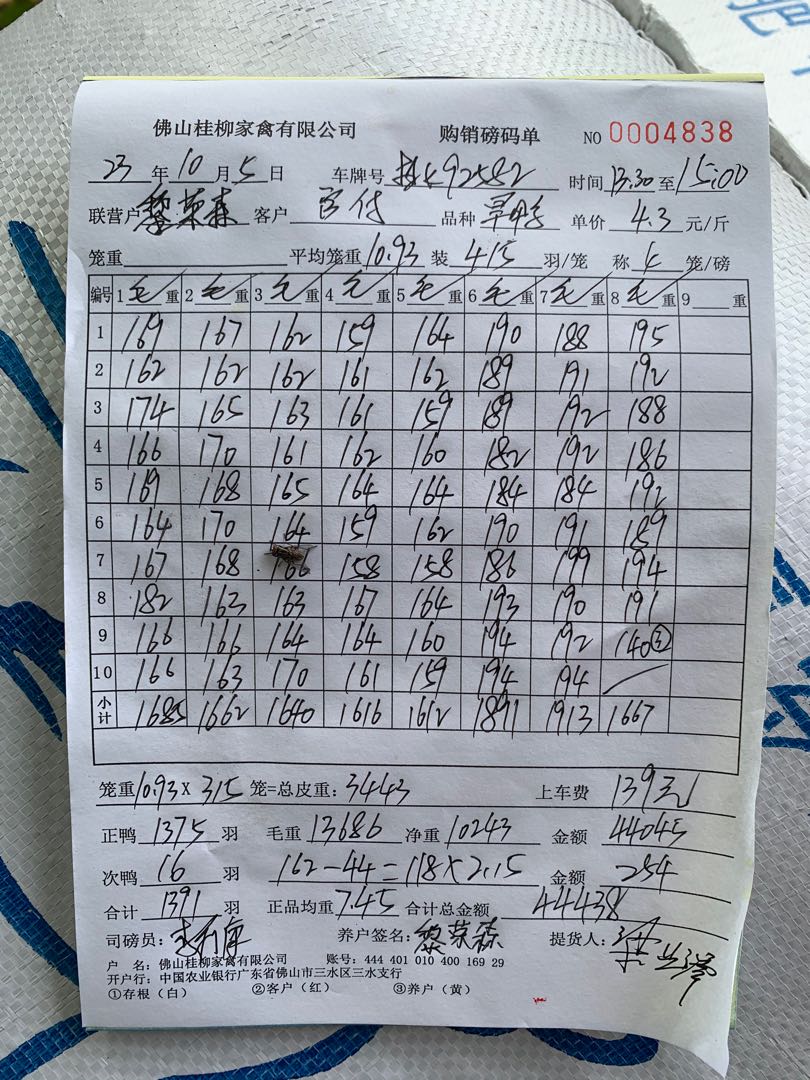 佛山桂柳家禽有限公司 购销磅码单 NO 0004838
23 年 10 月 5 日 车牌号 492582 时间 13:30 至 15:00
联营户 黎荣森 客户 品种 单价 4.3 元/斤
笼重 平均笼重 10.93 装 4.15 羽/笼 称 4 笼/磅
编号 1 毛 重 2 毛 重 3 毛 重 4 毛 重 5 毛 重 6 毛 重 7 毛 重 8 毛 重 9 重
1 169 167 162 159 164 190 188 195
2 162 162 162 161 162 189 191 192
3 174 165 163 161 159 189 192 188
4 166 170 161 162 160 182 192 186
5 169 168 165 164 164 184 184 192
6 164 170 164 159 162 190 191 189
7 167 168 166 158 158 186 199 194
8 182 163 163 167 164 193 190 191
9 166 166 164 164 160 194 192 140③
10 166 163 170 161 159 194 194
小计 1685 1662 1640 1616 1612 1891 1913 1667
笼重 10.93 x 315 笼=总皮重: 3443 上车费 139元
正鸭 1375 羽 毛重 13686 净重 10243 金额 44045
次鸭 16 羽 162-44=118x2.15 金额 254
合计 1391 羽 正品均重 7.45 合计总金额 44438
司磅员: 养户签名: 黎荣森 提货人:
户 名: 佛山桂柳家禽有限公司 账号: 444 401 010 400 169 29
开户行: 中国农业银行广东省佛山市三水区三水支行
①存根(白) ②客户(红) ③养户(黄)